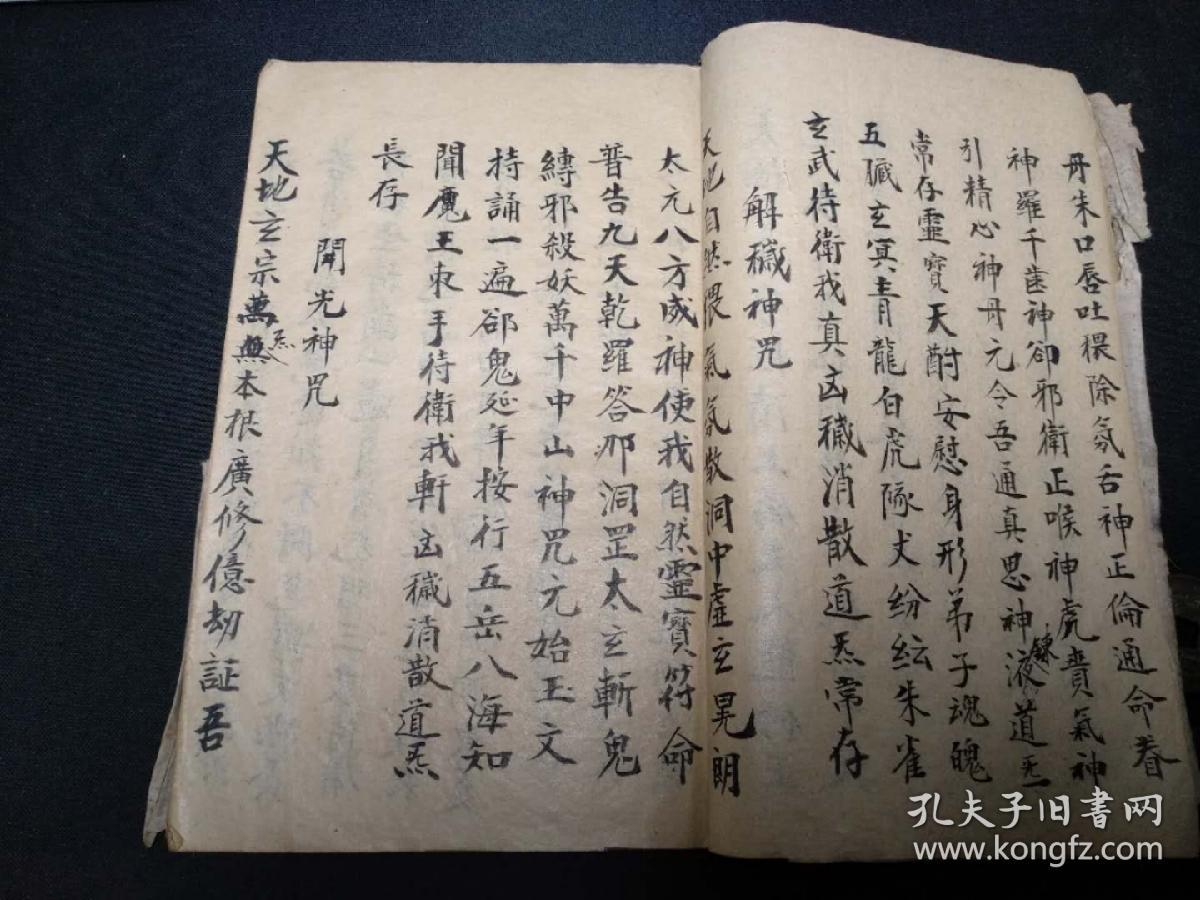 丹朱口唇吐猥除氛舌神正倫通命眷
神羅千齒神卻邪衛正喉神虎賁氣神
引精心神丹元令吾通真思神鍊液道炁
常存靈寶天酎安慰身形弟子魂魄
五臟玄冥青龍白虎隊丈紛紜朱雀
玄武待衛我真凶穢消散道炁常存
解穢神咒
天地自然猥氣氛散洞中虛玄晃朗
太元八方威神使我自然靈寶符命
普告九天乾羅答那洞罡太玄斬鬼
縛邪殺妖萬千中山神咒元始玉文
持誦一遍卻鬼延年按行五岳八海知
聞魔王束手待衛我軒凶穢消散道炁
長存
開光神咒
天地玄宗萬炁本根廣修億劫証吾
孔夫子旧书网
www.kongfz.com